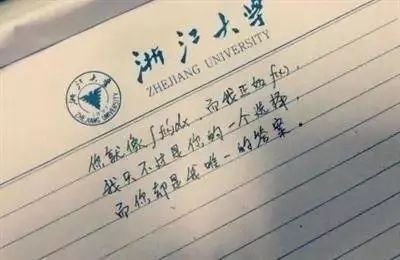 浙江大学
ZHEJIANG UNIVERSITY
你就像∫f(x)dx，而我正如f(x)，
我只不过是你的一个选择，
而你却是我唯一的答案。